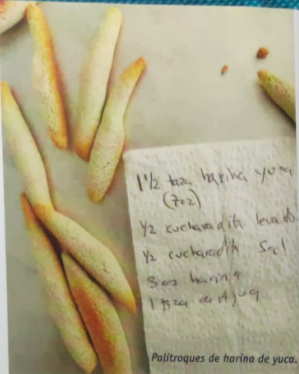 1 1/2 taza harina yuca
(7oz)
1/2 cucharadita levad
1/2 cucharadita Sal
3 oz harina
1 taza de Agua
Palitroques de harina de yuca.